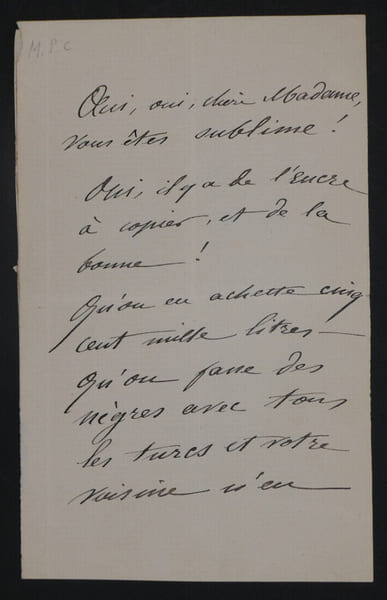 M.P.C
Oui, oui, chère Madame,
vous êtes sublime !
Oui, il y a de l'encre
à copier, et de la
bonne !
Qu'on en achette cinq
cent mille litres –
qu'on fasse des
nègres avec tous
les turcs et votre
voisine n'en